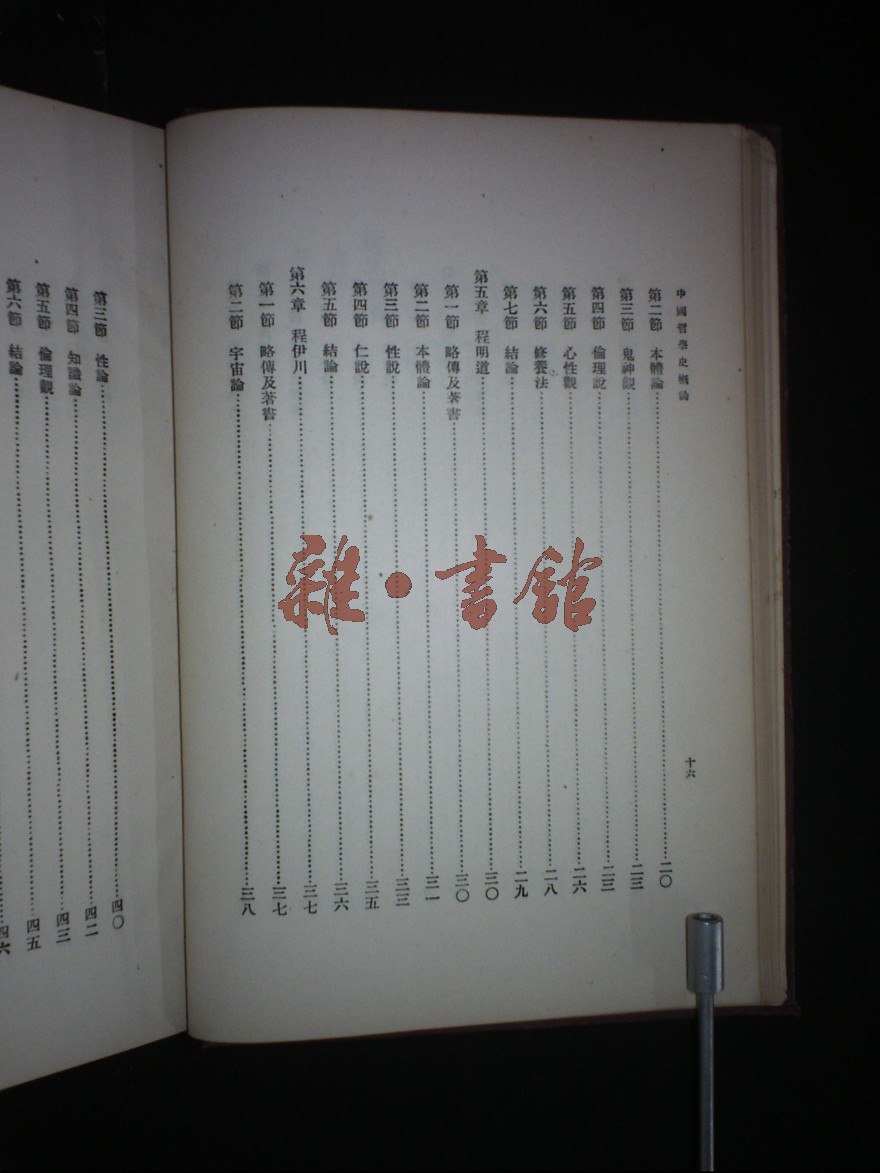 中國哲學史概論
十六
第二節 本體論……二〇
第三節 鬼神觀……二三
第四節 倫理說……二三
第五節 心性觀……二六
第六節 修養法……二八
第七節 結論……二九
第五章 程明道……三〇
第一節 略傳及著書……三〇
第二節 本體論……三一
第三節 性說……三三
第四節 仁說……三五
第五節 結論……三六
第六章 程伊川……三七
第一節 略傳及著書……三七
第二節 宇宙論……三八
第三節 性論……四〇
第四節 知識論……四二
第五節 倫理觀……四三
第六節 結論……四五
四六
雜·書館